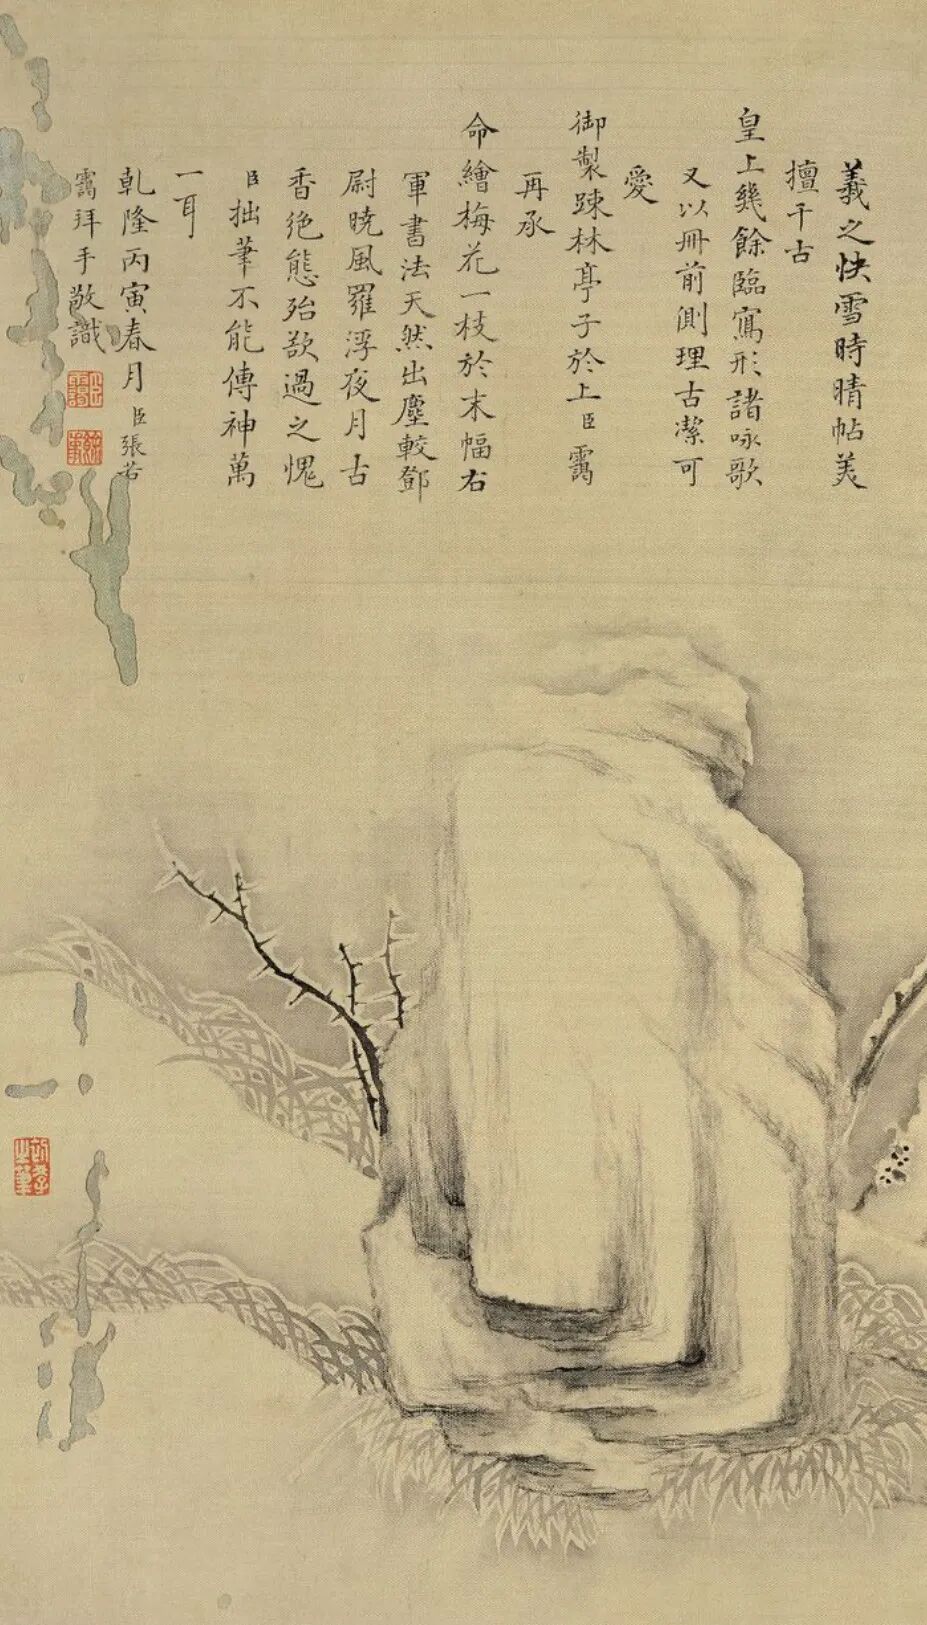 羲之快雪時晴帖美
擅千古
皇上幾餘臨寫形諸咏歌
又以冊前側理古潔可
愛
御製踈林亭子於上臣靄
再承
命繪梅花一枝於末幅右
軍書法天然出塵較鄧
尉曉風羅浮夜月古
香絶態殆欲過之愧
臣拙筆不能傳神萬
一耳
乹隆丙寅春月臣張若
靄拜手敬識